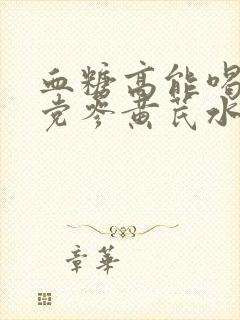 血糖高能喝
党参黄芪水
章华